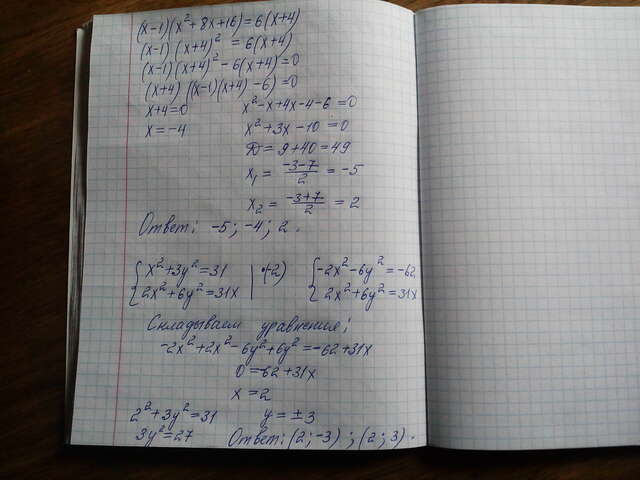 (x-1)(x²+8x+16)=6(x+4)
(x-1)(x+4)² = 6(x+4)
(x-1)(x+4)² - 6(x+4)=0
(x+4)((x-1)(x+4)-6)=0
x+4=0 x²-x+4x-4-6=0
x=-4 x²+3x-10=0
D=9+40=49
x₁ = (-3-7)/2 = -5
x₂ = (-3+7)/2 = 2
Ответ: -5; -4; 2.
{x²+3y²=31 |·(-2) {-2x²-6y²=-62
{2x²+6y²=31x {2x²+6y²=31x
Складываем уравнения:
-2x²+2x²-6y²+6y²=-62+31x
0=-62+31x
x=2
2²+3y²=31 y=±3
3y²=27 Ответ: (2;-3); (2;3).